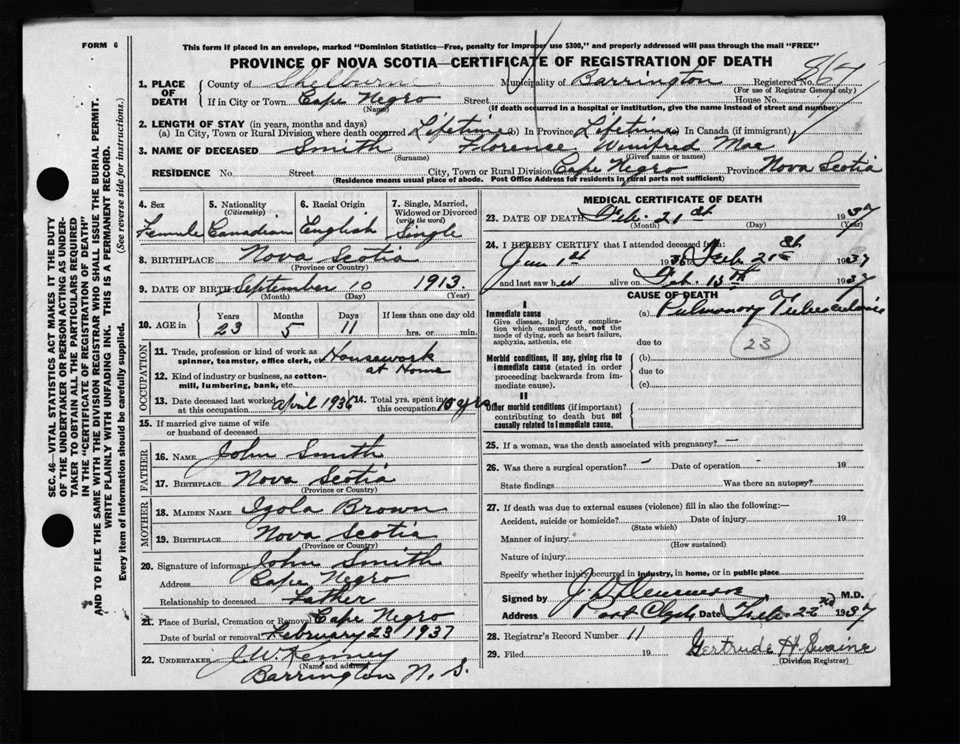 FORM 6
This form if placed in an envelope, marked "Dominion Statistics—Free, penalty for improper use $300," and properly addressed will pass through the mail "FREE"
PROVINCE OF NOVA SCOTIA—CERTIFICATE OF REGISTRATION OF DEATH
SEC. 46—VITAL STATISTICS ACT MAKES IT THE DUTY
OF THE UNDERTAKER OR PERSON ACTING AS UNDER-
TAKER TO OBTAIN ALL THE PARTICULARS REQUIRED
IN THE "CERTIFICATE OF REGISTRATION OF DEATH"
AND TO FILE THE SAME WITH THE DIVISION REGISTRAR WHO SHALL ISSUE THE BURIAL PERMIT.
WRITE PLAINLY WITH UNFADING INK. THIS IS A PERMANENT RECORD.
Every item of information should be carefully supplied. (See reverse side for instructions.)
1. PLACE OF DEATH County of Shelburne Municipality of Barrington Registered No. 867
(For use of Registrar General only)
If in City or Town Cape Negro Street House No.
(Name) (If death occurred in a hospital or institution, give the name instead of street and number)
2. LENGTH OF STAY (in years, months and days)
(a) In City, Town or Rural Division where death occurred Lifetime (b) In Province Lifetime (c) In Canada (if immigrant)
3. NAME OF DECEASED Smith Florence Winifred Mae
(Surname) (Given name or names)
RESIDENCE No. Street City, Town or Rural Division Cape Negro Province Nova Scotia
(Residence means usual place of abode. Post Office Address for residents in rural parts not sufficient)
4. Sex 5. Nationality (Citizenship) 6. Racial Origin 7. Single, Married, Widowed or Divorced (write the word)
Female Canadian English Single
8. BIRTHPLACE Nova Scotia
(Province or Country)
9. DATE OF BIRTH September 10 1913
(Month) (Day) (Year)
10. AGE in Years Months Days If less than one day old
23 5 11 hrs. or min.
OCCUPATION
11. Trade, profession or kind of work as spinner, teamster, office clerk, etc. Housework
12. Kind of industry or business, as cotton-mill, lumbering, bank, etc. at Home
13. Date deceased last worked at this occupation April 1936 14. Total yrs. spent in this occupation 15 yrs
15. If married give name of wife or husband of deceased
FATHER
16. NAME John Smith
17. BIRTHPLACE Nova Scotia
(Province or Country)
MOTHER
18. MAIDEN NAME Izola Brown
19. BIRTHPLACE Nova Scotia
(Province or Country)
20. Signature of informant John Smith
Address Cape Negro
Relationship to deceased Father
21. Place of Burial, Cremation or Removal Cape Negro
Date of burial or removal February 23 1937
22. UNDERTAKER J.W. Kenney
(Name and address)
Barrington N. S.
MEDICAL CERTIFICATE OF DEATH
23. DATE OF DEATH Feb. 21st 1937
(Month) (Day) (Year)
24. I HEREBY CERTIFY that I attended deceased from:
Jan 1st 1936 to Feb 21st 1937
and last saw her alive on Feb. 15th 1937
CAUSE OF DEATH
I
Immediate cause (a) Pulmonary Tuberculosis
Give disease, injury or complication which caused death, not the mode of dying, such as heart failure, asphyxia, asthenia, etc
due to
23
Morbid conditions, if any, giving rise to immediate cause (stated in order proceeding backwards from immediate cause).
(b)
due to
(c)
II
Other morbid conditions (if important) contributing to death but not causally related to immediate cause.
25. If a woman, was the death associated with pregnancy? —
26. Was there a surgical operation? — Date of operation — 19
State findings Was there an autopsy?
27. If death was due to external causes (violence) fill in also the following:—
Accident, suicide or homicide? Date of injury 19
(State which)
Manner of injury
(How sustained)
Nature of injury
Specify whether injury occurred in industry, in home, or in public place
Signed by M.D.
Address Port Clyde Date Feb. 22nd 1937
28. Registrar's Record Number 11
29. Filed 19 Gertrude H. Swaine
(Division Registrar)